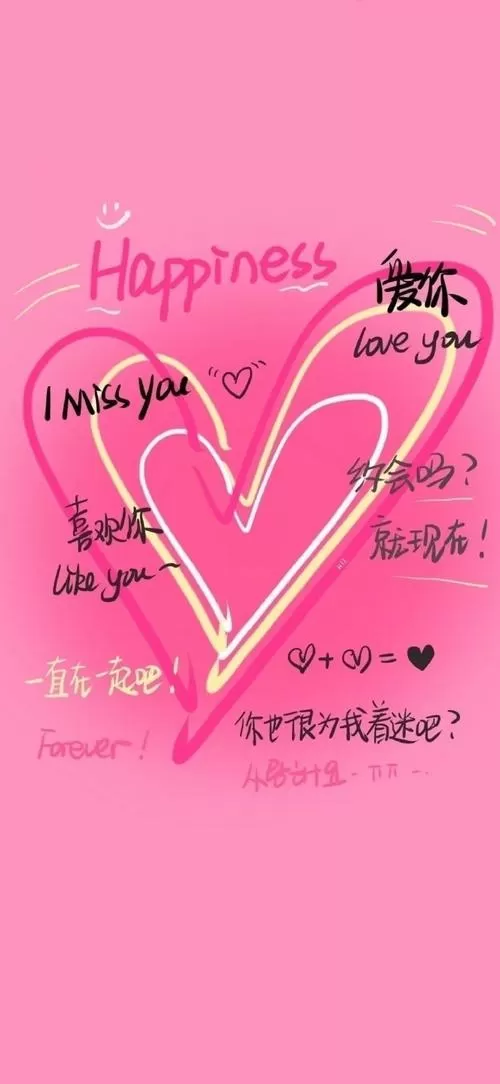 Happiness
爱你
love you
I Miss you
约会吗?
就现在!
喜欢你
like you~
一直在一起吧!
Forever!
你也很为我着迷吧?
사랑해요..ㅠㅠ..